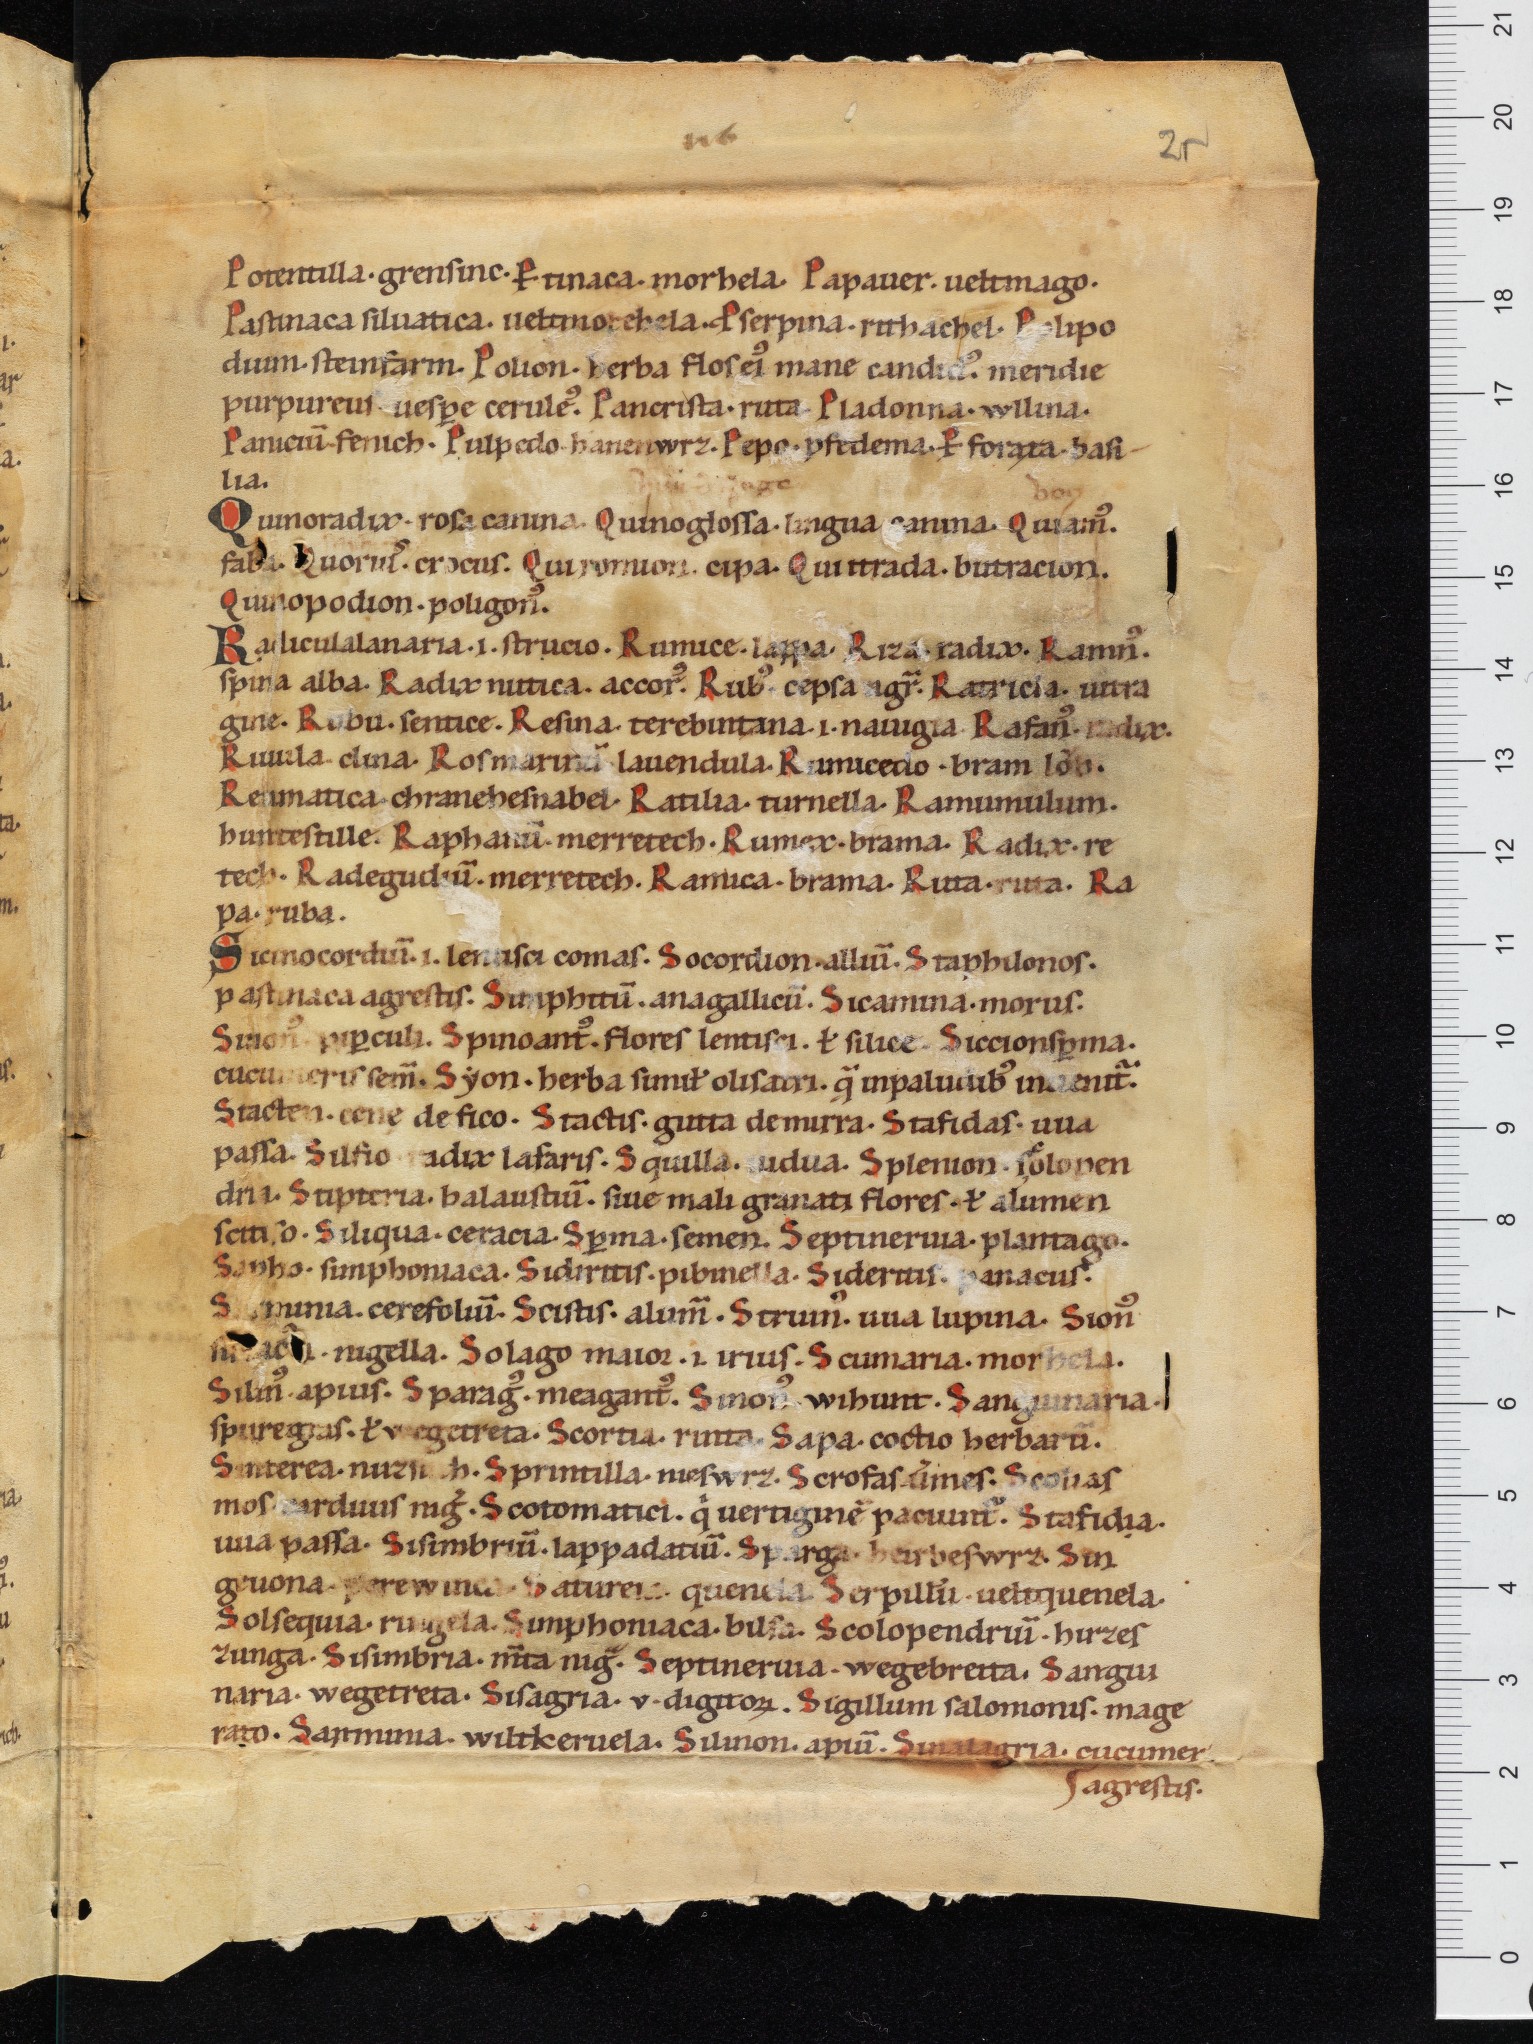 2r
Potentilla · grensinc · Ꝑtinaca · morhela · Papauer · ueltmago ·
Pastinaca siluatica · ueltmorehela · Ꝑserpina · rithachel · Polipo
dium · steinfarm · Polion · herba flos eiꝰ mane candidꝰ · meridie
purpureus · uesꝑe ceruleꝰ · Pancrista · ruta · Pladonna · wllina ·
Paniciū · fenich · Pulpedo · hanenwrz · Pepo · pfedema · Ꝑforata · hasi-
lia ·
Quinoradix · rosa canina · Quinoglossa · lingua canina · Quiamꝰ ·
faba · Quorusꝰ · crocus · Quiromion · cipa · Quittrada · butracion ·
Quinopodion · poligonꝰ ·
Radiculalanaria · i · strucio · Rumice · lappa · Riza · radix · Ramnꝰ ·
spina alba · Radix nutica · accorꝰ · Rubꝰ · cepsa agr̄ · Ratricia · uitra
gine · Rubu · sentice · Resina · terebintana · i · nauugia · Rafanꝰ · radix ·
Ruuila · clina · Rosmarinū · lauendula · Rumicedo · bram lōb ·
Reumatica · chranehesnabel · Ratilia · turnella · Ramumulum ·
huntestille · Raphanū · merretech · Rumex · brama · Radix · re
tech · Radegudiū · merretech · Ramica · brama · Ruta · ruta · Ra
pa · ruba ·
Sicinocordiū · i · lentisci comas · Socordion · alliū · Staphilonos ·
pastinaca agrestis · Simphitū · anagallicū · Sicamina · morus ·
Sinonꝰ · piꝑculi · Spinoantꝰ · flores lentisci · ł silice · Siccionsꝑma ·
cucumeris sem̄ · Syon · herba simił olisatri · q̄ inpaludibꝰ inuenit᷑ ·
Stacten · cene de fico · Stactis · gutta de mirra · Stafidas · uua
passa · Silfio radix lafaris · Squilla · Splenion · scolopen
dria · Stipteria · balaustiū · siue mali granati flores · ł alumen
Siliqua · ceracia · Sꝑma · semen · Septineruia · plantago ·
Sapho · simphoniaca · Sidiritis · pibinella · Sideritis · panacus ·
cerefoliū · Scistis · alum̄ · Strumꝰ · uua lupina · Sionꝰ
nigella · Solago maior · i · irius · Scumaria · morhela ·
Silinꝰ · apius · Sparagꝰ · meagantꝰ · Sinonꝰ · wihunt · Sanguinaria ·
spuregras · ł wegetreta · Scortia · rinta · Sapa · coctio herbarū ·
Sinterea · Sprintilla · nieswrz · Scrofas · Scolias
mos carduus nigꝰ · Scotomatici · q̇ uertiginē paciunt᷑ · Stafidia ·
uua passa · Sisimbriū · lappadatiū · Sparga · heirbeswrz · Sin
gruona · perewinca · Satureia · quenela · Serpillū · ueltquenela ·
Solsequia · ringela · Simphoniaca · bilsa · Scolopendriū · hirzes
zunga · Sisimbria · m̄ta nig̃ · Septineruia · wegebreita · Sangui
naria · wegetreta · Sisagria · v · digitoꝝ · Sigillum salomonis · mage
rato · Sarminia · wiltkeruela · Silinon · apiū · Sinatagria · cucumer
agrestis ·